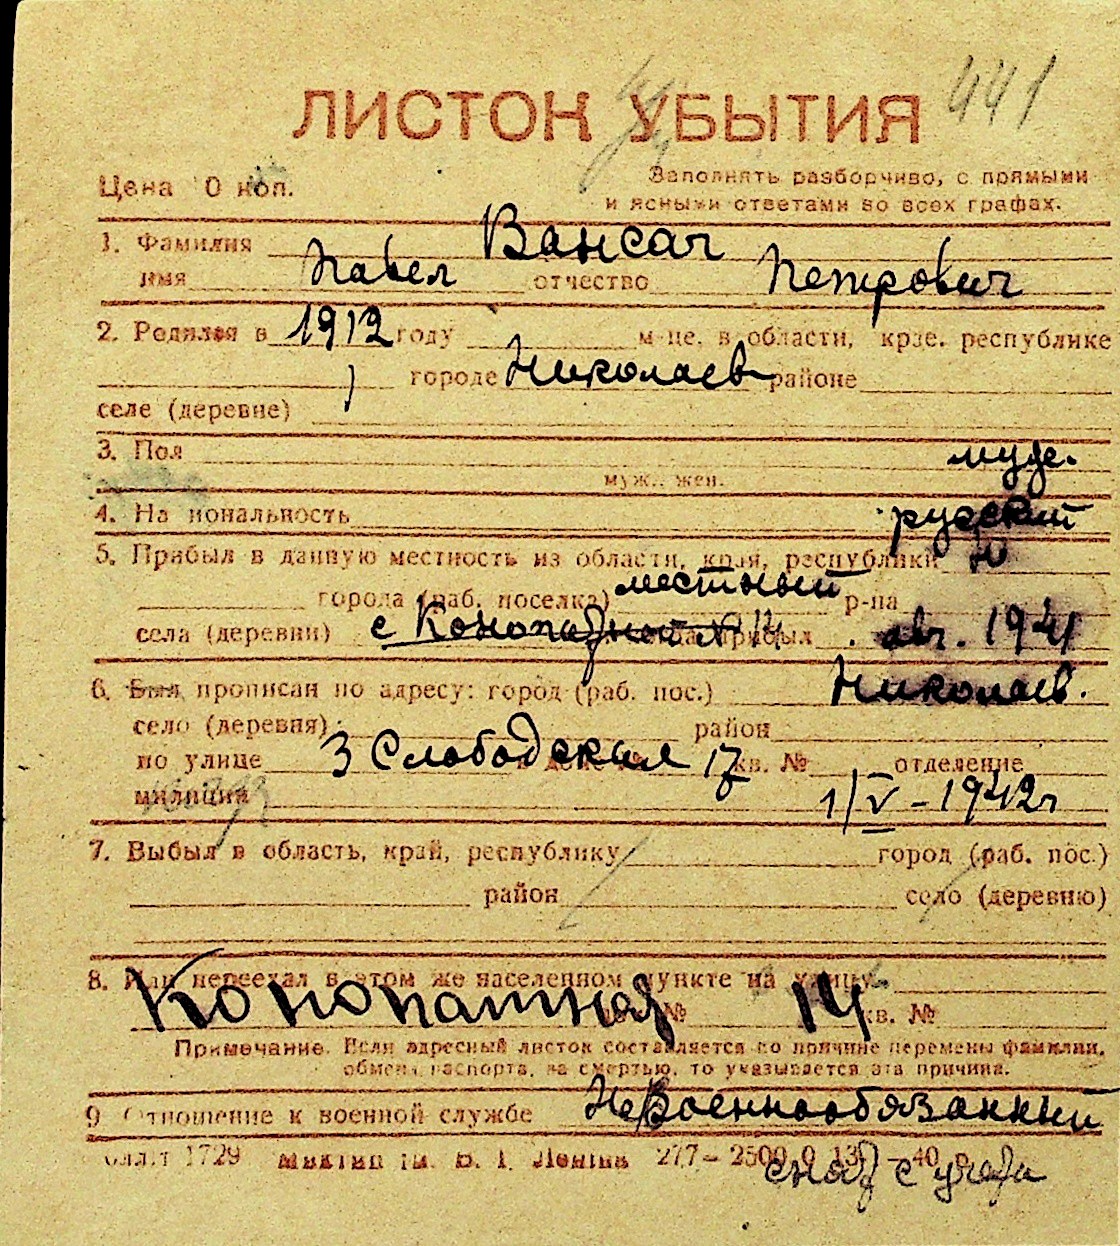 441
ЛИСТОК УБЫТИЯ
Цена 0 коп.
Заполнять разборчиво, с прямыми
и ясными ответами во всех графах.
1. Фамилия Вансач
имя Павел отчество Петрович
2. Родился в 1912 году м-це, в области, крае, республике
городе Николаев районе
селе (деревне)
3. Пол муж.
муж., жен.
4. Национальность русский
5. Прибыл в данную местность из области, края, республики
города (раб. поселка) местный р-на
села (деревни) с Конопатной № 14 прибыл авг. 1941
6. Был прописан по адресу: город (раб. пос.) Николаев.
село (деревня) район
по улице 3 Слободская 17 кв. № отделение
милиции 1/V - 1942 г
7. Выбыл в область, край, республику город (раб. пос.)
район село (деревню)
8. Или переехал в этом же населенном пункте на улицу
Конопатная № 14 кв. №
Примечание. Если адресный листок составляется по причине перемены фамилии,
обмена паспорта, за смертью, то указывается эта причина.
9 Отношение к военной службе Невоеннообязанный
1729 им. В. І. Леніна 277 – 2500 – 40
с учета